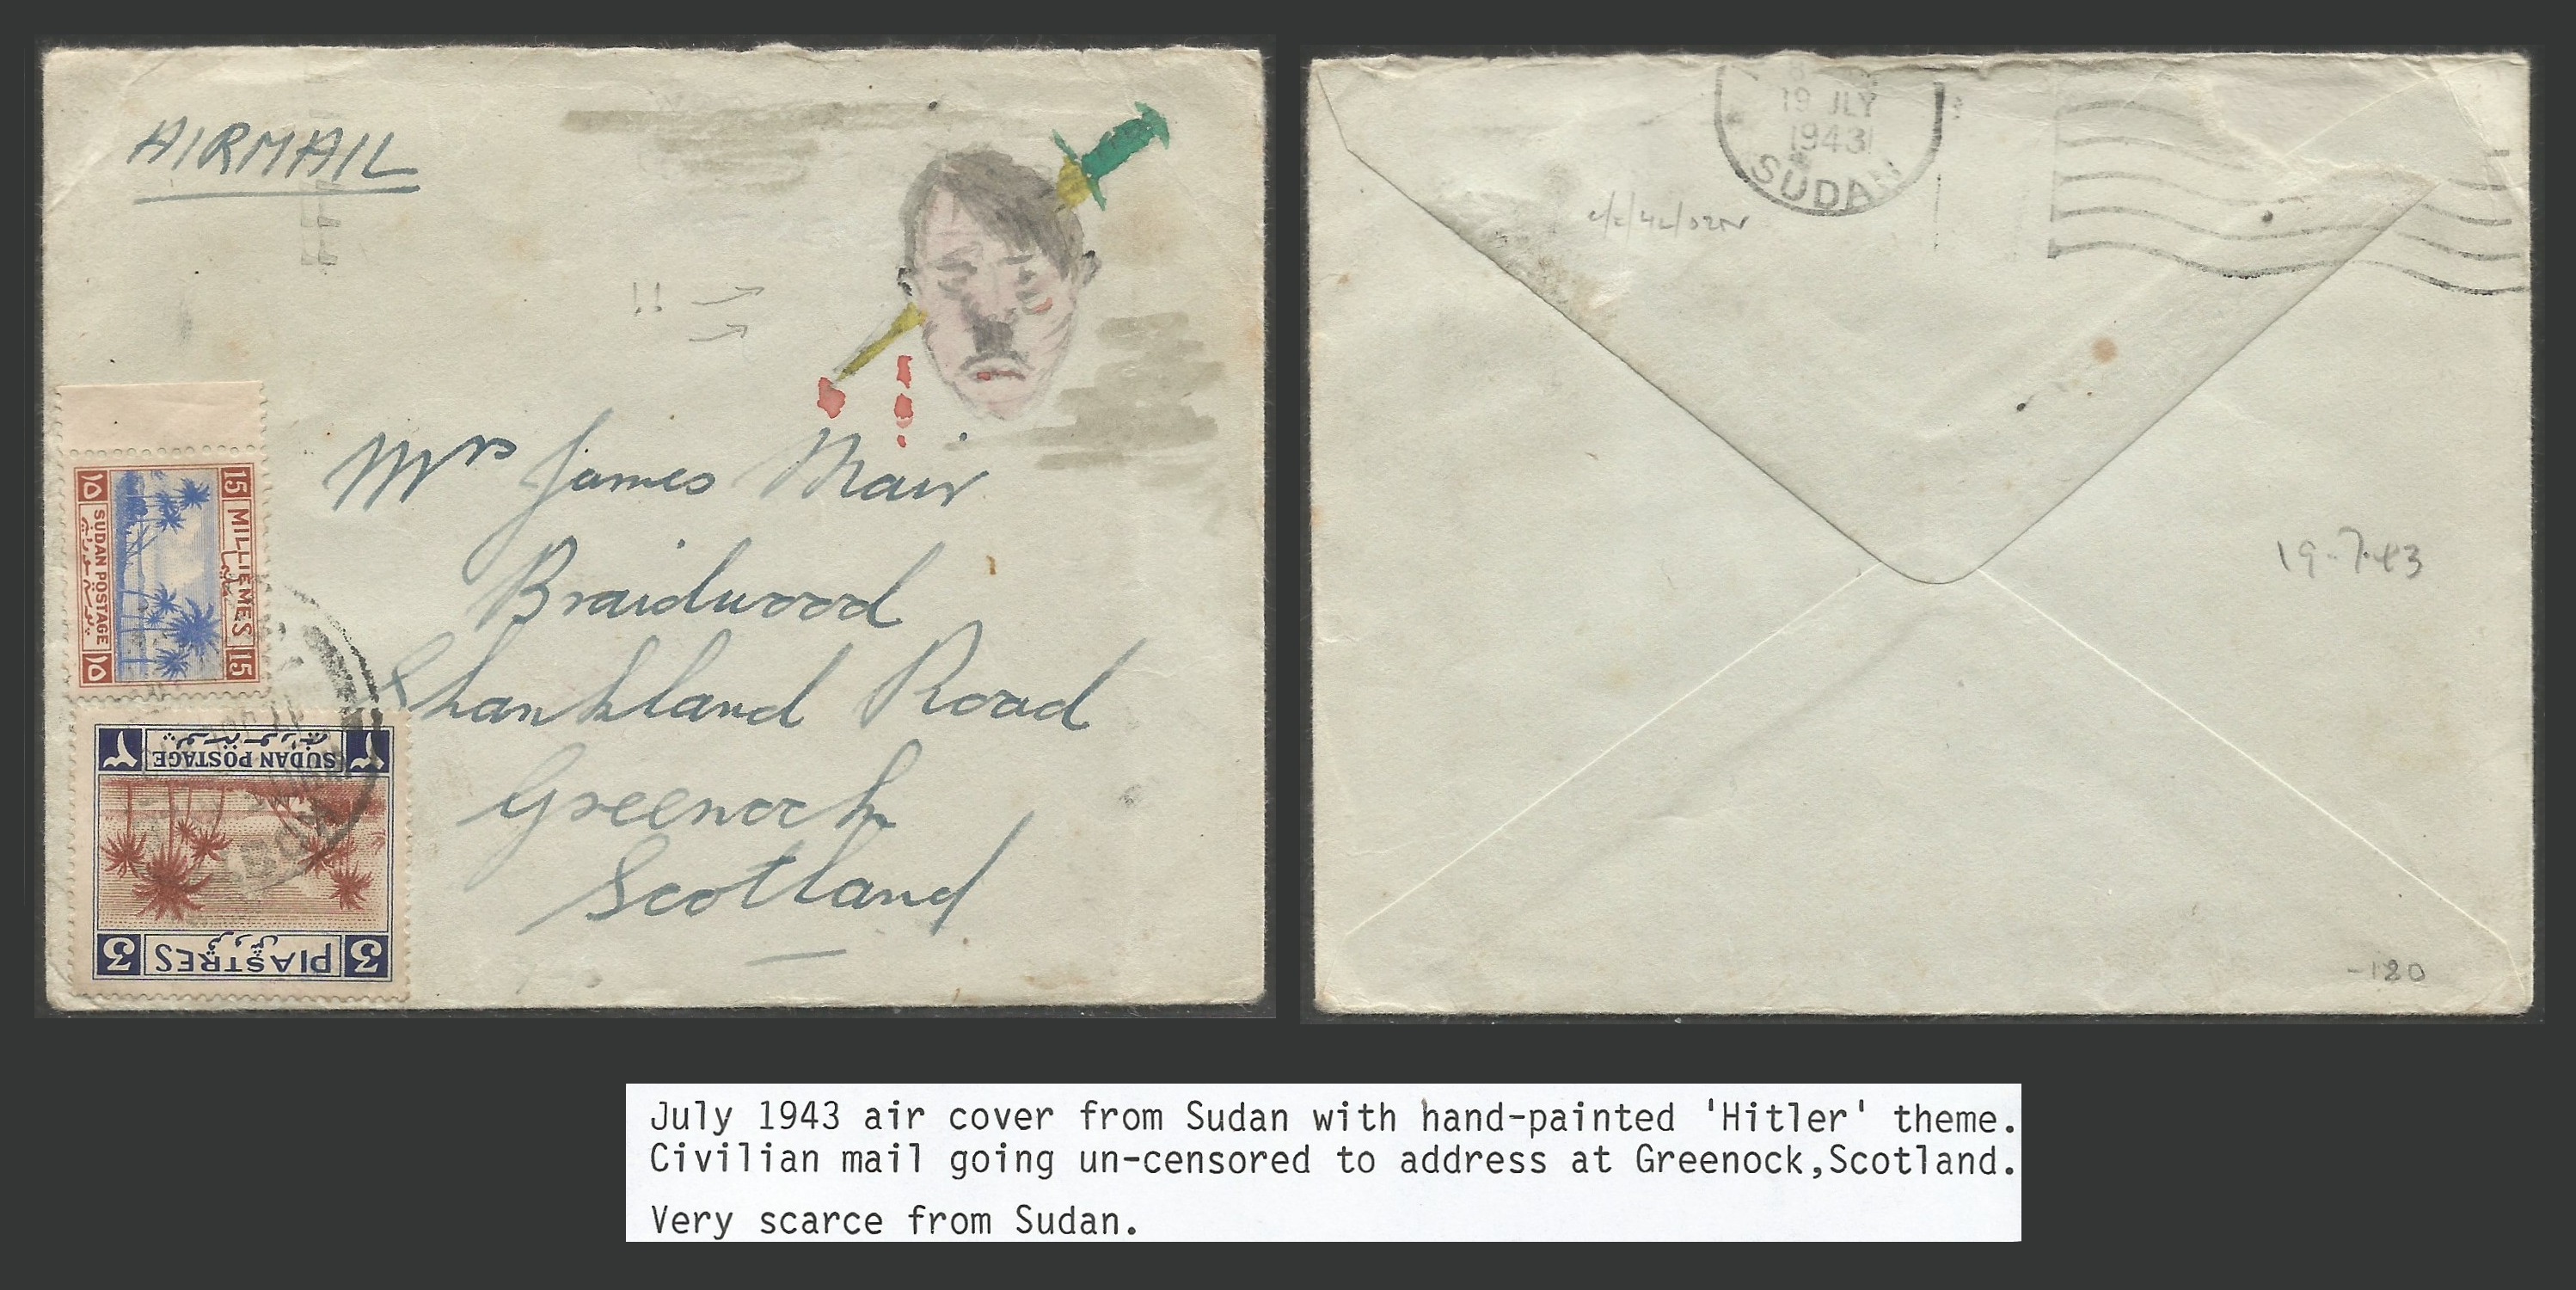 AIRMAIL
!!
Mrs James Mair
Braidwood
Shankland Road
Greenock
Scotland
15 MILLIEMES 15
مليم
١٥ SUDAN POSTAGE ١٥
SUDAN POSTAGE
3 PIASTRES 3
19 JLY
1943
SUDAN
19-7-43
-120
July 1943 air cover from Sudan with hand-painted 'Hitler' theme.
Civilian mail going un-censored to address at Greenock,Scotland.
Very scarce from Sudan.